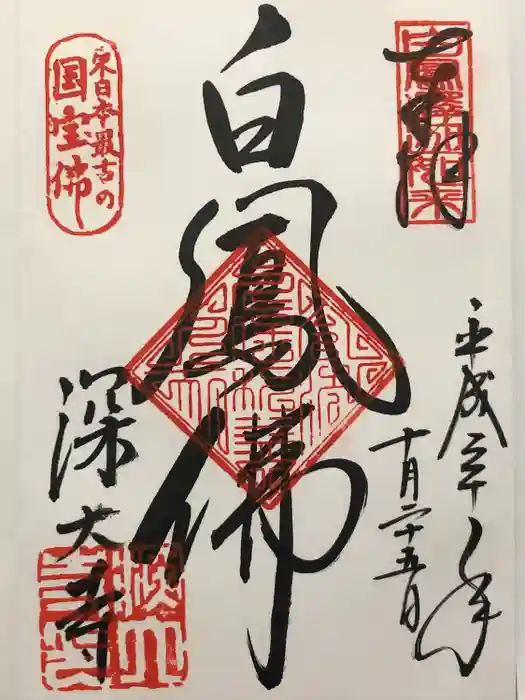 平成三十年
十月二十五日
白鳳佛
東日本最古の
国宝佛
深大寺